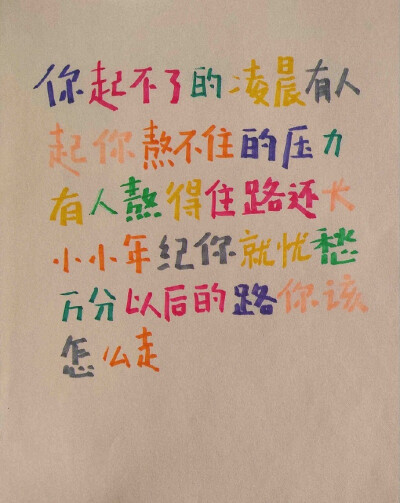 你起不了的凌晨有人
起你熬不住的压力
有人熬得住路还长
小小年纪你就忧愁
万分以后的路你该
怎么走